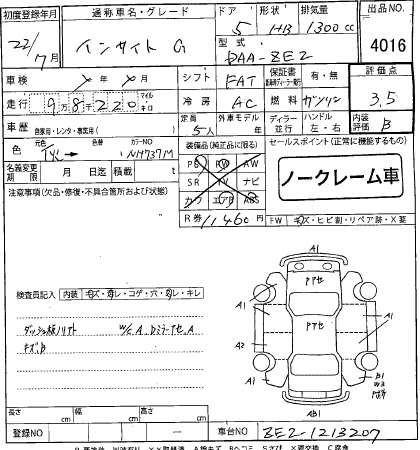 初度登録年月 通称車名・グレード ドア 形状 排気量 出品NO.
22/7月 インサイト G 5 HB 1300cc 4016
型式 DAA-ZE2
車検 年 月 シフト FAT 保証書 有・無 評価点
走行 9万8千220 マイル キロ 冷房 AC 燃料 ガソリン 3,5
車歴 自家用・レンタ・事業用( ) 定員 5人 外車モデル 年 ディーラー 並行 ハンドル 左・右 内装評価 B
色 元色 色替 カラーNO NH737M 装備品(純正品に限る) セールスポイント(正常に機能するもの)
名義変更期限 月 日迄 積載 t PS PW AW
SR TV ナビ
カワ エアB ABS
ノークレーム車
注意事項(欠品・修復・不具合箇所および状態)
R券 11460円 FW キズ・ヒビ割・リペア跡・X要
A1
アアセ
検査員記入 内装 キズ・汚レ・コゲ・穴・切レ・キレ
A1 A1
ダッシュ板ハリト W/C A
キズ.B
A2 A1
アアセ
A1 B1
AB1
長さ cm 幅 cm 高さ cm
登録NO 車台NO ZE2-1213207